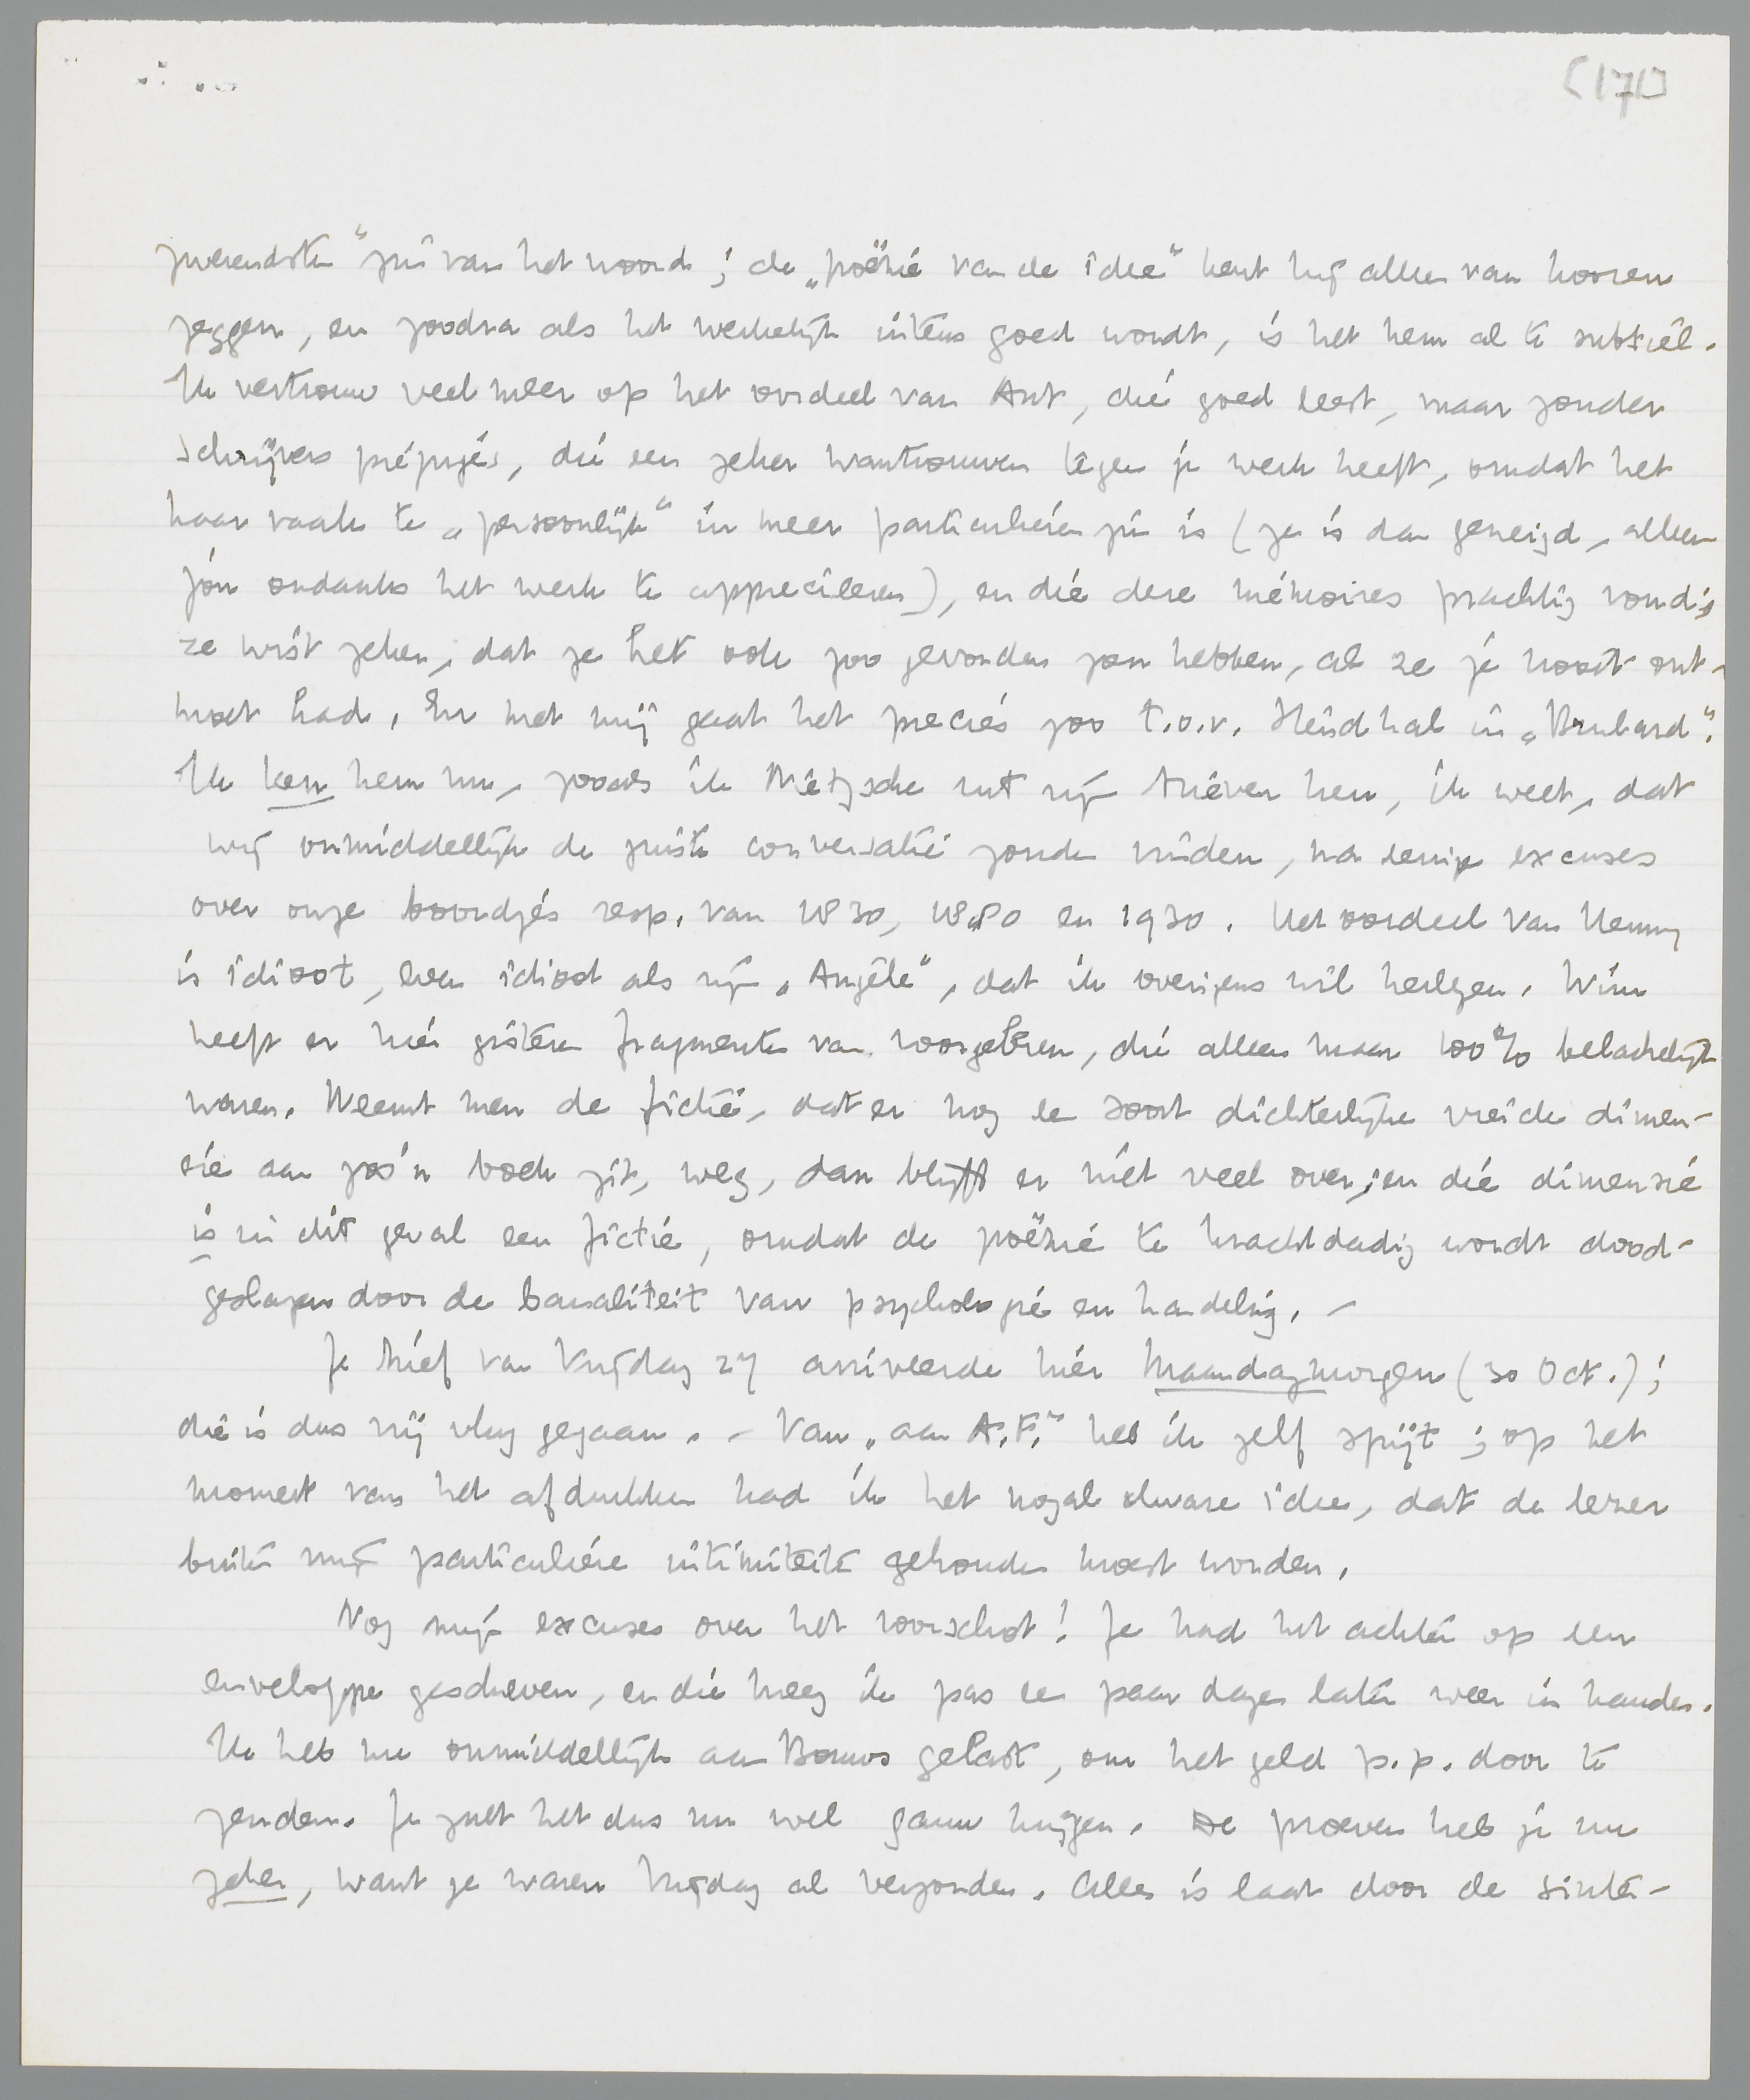 [171]
zwevendsten" zin van het woord; de „poëzie van de idee" kent hij alleen van hooren
zeggen, en zoodra als het werkelijk intens goed wordt, is het hem al te subtiel.
Ik vertrouw veel meer op het oordeel van Ant, die goed leest, maar zonder
schrijvers préjugés, die een zeker wantrouwen tegen je werk heeft, omdat het
haar vaak te „persoonlijk" in meer particulieren zin is (ze is dan geneigd, alleen
jóu ondanks het werk te apprecieeren), en die deze mémoires prachtig vond;
ze wist zeker, dat ze het ook zoo gevonden zou hebben, als ze je nooit ont-
moet had. En met mij gaat het precies zoo t.o.v. Stendhal in „Brulard".
Ik ken hem nu, zooals ik Nietzsche uit zijn brieven ken, ik weet, dat
wij onmiddellijk de juiste conversatie zouden vinden, na eenige excuses
over onze boordjes resp. van 1830, 1880 en 1930. Het oordeel van Henny
is idioot, even idioot als zijn „Angèle", dat ik overigens wil herlezen. Wim
heeft er hier gisteren fragmenten van voorgelezen, die alleen maar 100% belachelijk
waren. Neemt men de fictie, dat er nog een soort dichterlijke vreide dimen-
sie aan zoo'n boek zit, weg, dan blijft er niet veel over; en die dimensie
is in dit geval een fictie, omdat de poëzie te krachtdadig wordt dood-
geslagen door de banaliteit van psychologie en handeling. –
Je brief van Vrijdag 27 arriveerde hier Maandagmorgen (30 Oct.);
die is dus vrij vlug gegaan. – Van „aan A.F." heb ik zelf spijt; op het
moment van het afdrukken had ik het nogal dwaze idee, dat de lezer
buiten mijn particuliere intimiteit gehouden moest worden.
Nog mijn excuses over het voorschot! Je had het achter op een
enveloppe geschreven, en die kreeg ik pas een paar dagen later weer in handen.
Ik heb nu onmiddellijk aan Bouws gelast, om het geld p.p. door te
zenden. Je zult het dus nu wel gauw krijgen. De proeven heb je nu
zeker, want ze waren Vrijdag al verzonden. Alles is laat door de sinter-